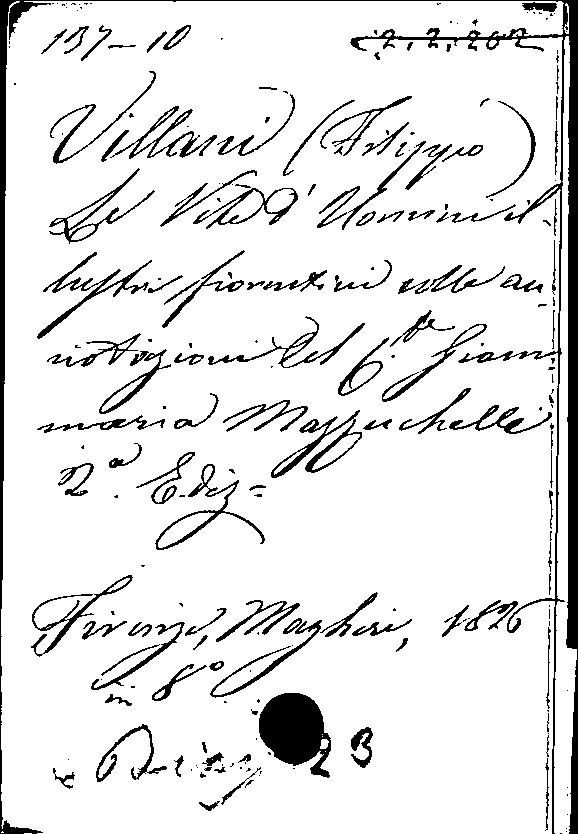 137-10 2.2.202
Villani (Filippo)
Le Vite d'Uomini il-
lustri fiorentini colle an-
notazioni del C.te Giam-
maria Mazzuchelli
2a. Ediz=
Firenze, Magheri, 1826
in 8o
23